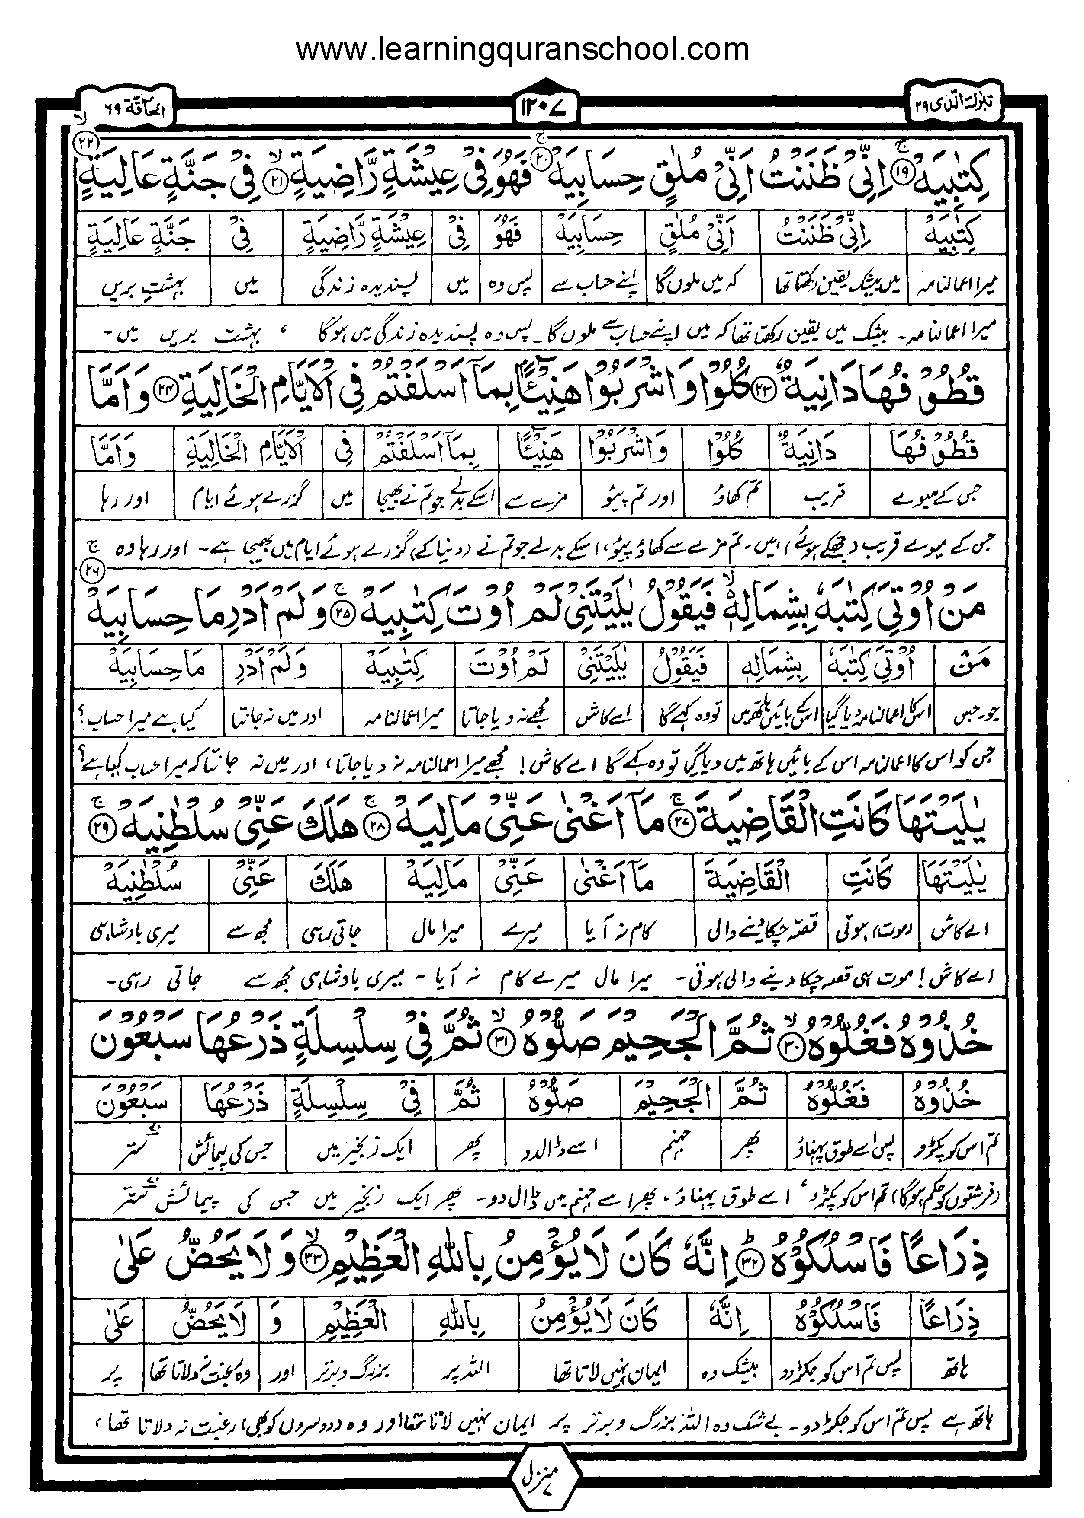 www.learningquranschool.com
تبٰرك الذی ٢٩
١٢٠٧
الحآقّة ٦٩
كِتٰبِيَهْ ۚ﴿١٩﴾ اِنِّىْ ظَنَنْتُ اَنِّىْ مُلٰقٍ حِسَابِيَهْ ۚ﴿٢٠﴾ فَهُوَ فِىْ عِيْشَةٍ رَّاضِيَةٍ ۙ﴿٢١﴾ فِىْ جَنَّةٍ عَالِيَةٍ ۙ﴿٢٢﴾
كِتٰبِيَهْ اِنِّىْ ظَنَنْتُ اَنِّىْ مُلٰقٍ حِسَابِيَهْ فَهُوَ فِىْ عِيْشَةٍ رَّاضِيَةٍ فِىْ جَنَّةٍ عَالِيَةٍ
میرا اعمالنامہ میں بیشک یقین رکھتا تھا کہ میں ملوں گا اپنے حساب سے پس وہ میں پسندیدہ زندگی میں بہشتِ بریں
میرا اعمالنامہ۔ بیشک میں یقین رکھتا تھا کہ میں اپنے حساب سے ملوں گا۔ پس وہ پسندیدہ زندگی میں ہوگا ، بہشت بریں میں۔
قُطُوْفُهَا دَانِيَةٌ ﴿٢٣﴾ كُلُوْا وَاشْرَبُوْا هَنِيْٓئًۢا بِمَآ اَسْلَفْتُمْ فِى الْاَيَّامِ الْخَالِيَةِ ﴿٢٤﴾ وَاَمَّا
قُطُوْفُهَا دَانِيَةٌ كُلُوْا وَاشْرَبُوْا هَنِيْٓئًا بِمَآ اَسْلَفْتُمْ فِى الْاَيَّامِ الْخَالِيَةِ وَاَمَّا
جس کے میوے قریب تم کھاؤ اور تم پیئو مزے سے اسکے بدلے جو تم نے بھیجا میں گزرے ہوئے ایام اور رہا
جس کے میوے قریب (جھکے ہوئے) ہیں۔ تم مزے سے کھاؤ پیئو، اسکے بدلے جو تم نے (دنیا کے) گزرے ہوئے ایام میں بھیجا ہے۔ اور رہا وہ
مَنْ اُوْتِىَ كِتٰبَهٗ بِشِمَالِهٖ ۙ فَيَقُوْلُ يٰلَيْتَنِىْ لَمْ اُوْتَ كِتٰبِيَهْ ۚ﴿٢٥﴾ وَلَمْ اَدْرِ مَا حِسَابِيَهْ ۚ﴿٢٦﴾
مَنْ اُوْتِىَ كِتٰبَهٗ بِشِمَالِهٖ فَيَقُوْلُ يٰلَيْتَنِىْ لَمْ اُوْتَ كِتٰبِيَهْ وَلَمْ اَدْرِ مَا حِسَابِيَهْ
جو۔جس اسکا اعمالنامہ دیا گیا اسکے بائیں ہاتھ میں تو وہ کہے گا اے کاش مجھے نہ دیا جاتا میرا اعمالنامہ اور میں نہ جانتا کیا ہے میرا حساب؟
جس کو اس کا اعمالنامہ اس کے بائیں ہاتھ میں دیا گیا تو وہ کہے گا اے کاش! مجھے میرا اعمالنامہ نہ دیا جاتا، اور میں نہ جانتا کہ میرا حساب کیا ہے؟
يٰلَيْتَهَا كَانَتِ الْقَاضِيَةَ ۚ﴿٢٧﴾ مَآ اَغْنٰى عَنِّىْ مَالِيَهْ ۚ﴿٢٨﴾ هَلَكَ عَنِّىْ سُلْطٰنِيَهْ ۚ﴿٢٩﴾
يٰلَيْتَهَا كَانَتِ الْقَاضِيَةَ مَآ اَغْنٰى عَنِّىْ مَالِيَهْ هَلَكَ عَنِّىْ سُلْطٰنِيَهْ
اے کاش (موت) ہوتی قصّہ چکا دینے والی کام نہ آیا میرے میرا مال جاتی رہی مجھ سے میری بادشاہی
اے کاش! موت ہی قصہ چکا دینے والی ہوتی۔ میرا مال میرے کام نہ آیا۔ میری بادشاہی مجھ سے جاتی رہی۔
خُذُوْهُ فَغُلُّوْهُ ۙ﴿٣٠﴾ ثُمَّ الْجَحِيْمَ صَلُّوْهُ ۙ﴿٣١﴾ ثُمَّ فِىْ سِلْسِلَةٍ ذَرْعُهَا سَبْعُوْنَ
خُذُوْهُ فَغُلُّوْهُ ثُمَّ الْجَحِيْمَ صَلُّوْهُ ثُمَّ فِىْ سِلْسِلَةٍ ذَرْعُهَا سَبْعُوْنَ
تم اس کو پکڑو پس اسے طوق پہناؤ پھر جہنم اسے ڈالدو پھر ایک زنجیر میں جس کی پیمائش ستّر
(فرشتوں کو حکم ہوگا) تم اس کو پکڑو، اسے طوق پہناؤ، پھر اسے جہنم میں ڈال دو۔ پھر ایک زنجیر میں جس کی پیمائش ستّر
ذِرَاعًا فَاسْلُكُوْهُ ؕ﴿٣٢﴾ اِنَّهٗ كَانَ لَا يُؤْمِنُ بِاللّٰهِ الْعَظِيْمِ ۙ﴿٣٣﴾ وَلَا يَحُضُّ عَلٰى
ذِرَاعًا فَاسْلُكُوْهُ اِنَّهٗ كَانَ لَا يُؤْمِنُ بِاللّٰهِ الْعَظِيْمِ وَ لَا يَحُضُّ عَلٰى
ہاتھ پس تم اس کو جکڑ دو بیشک وہ ایمان نہیں لاتا تھا اللہ پر بزرگ و برتر اور وہ رغبت نہ دلاتا تھا پر
ہاتھ ہے پس تم اس کو جکڑ دو۔ بے شک وہ اللہ بزرگ و برتر پر ایمان نہیں لاتا تھا اور وہ (دوسروں کو بھی) رغبت نہ دلاتا تھا،
منزل ٧